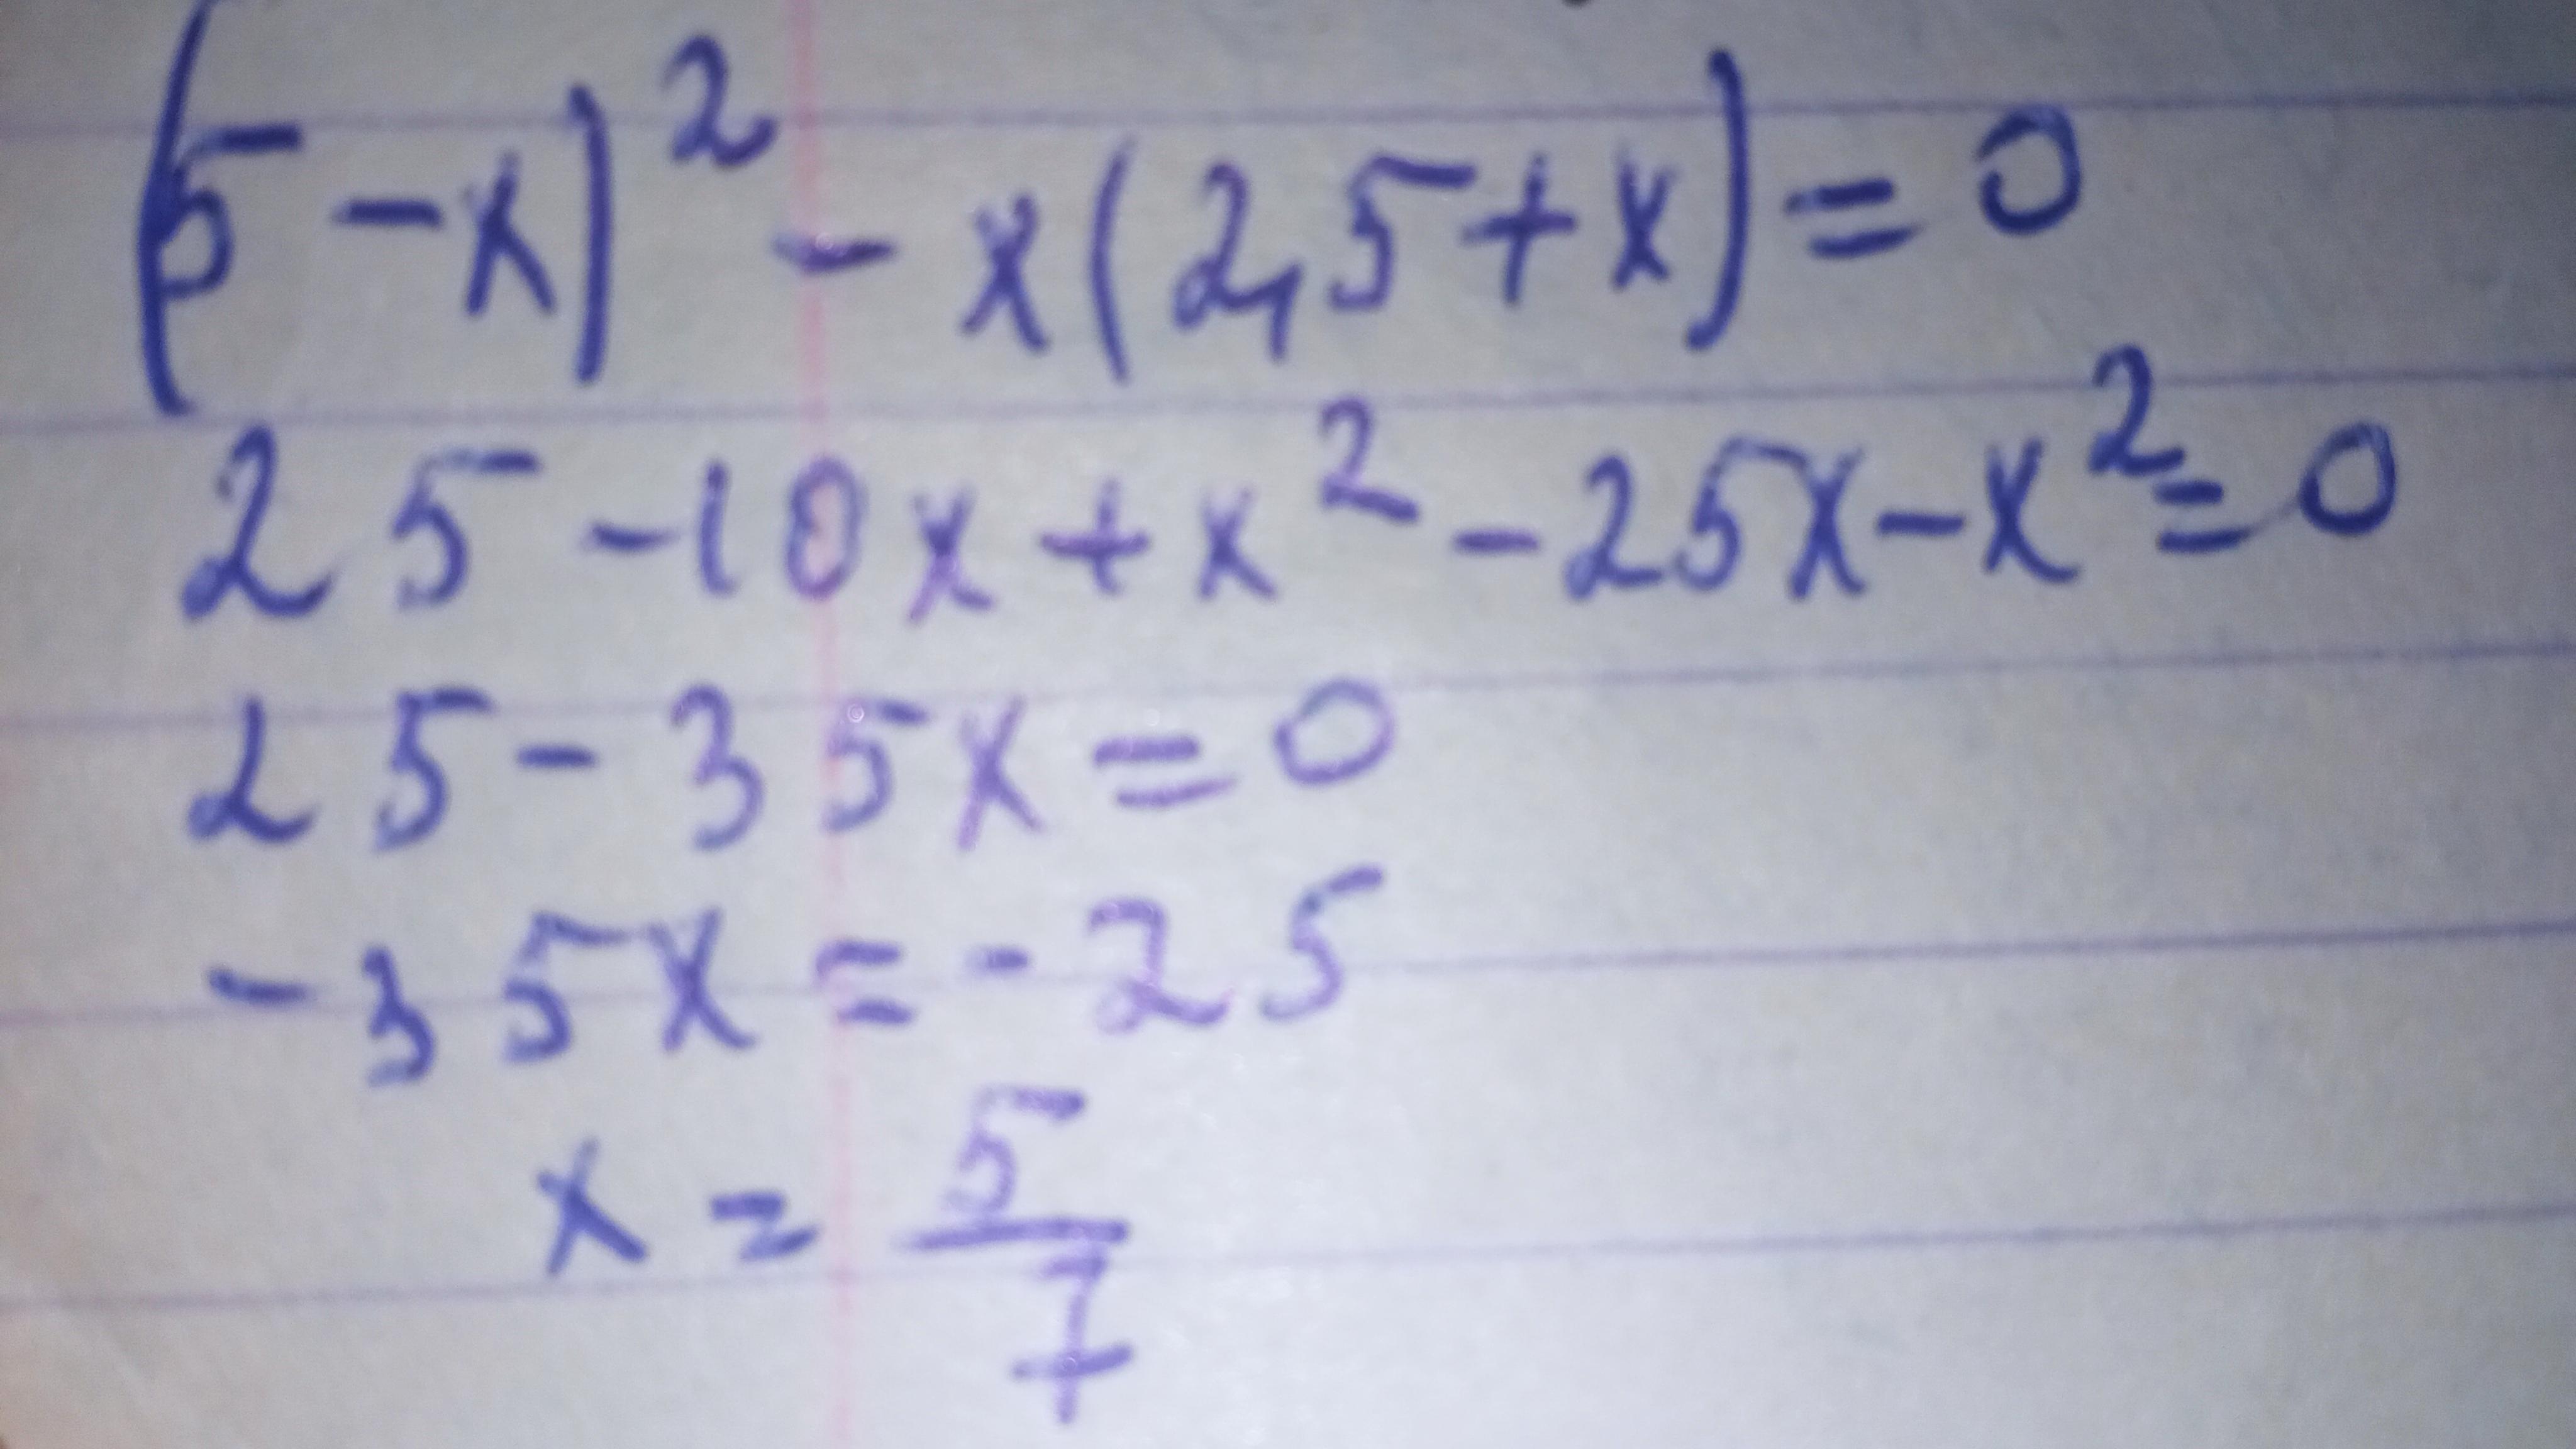 (5-x)² - x(2,5+x)=0
25-10x+x²-25x-x²=0
25-35x=0
-35x=-25
x=5/7